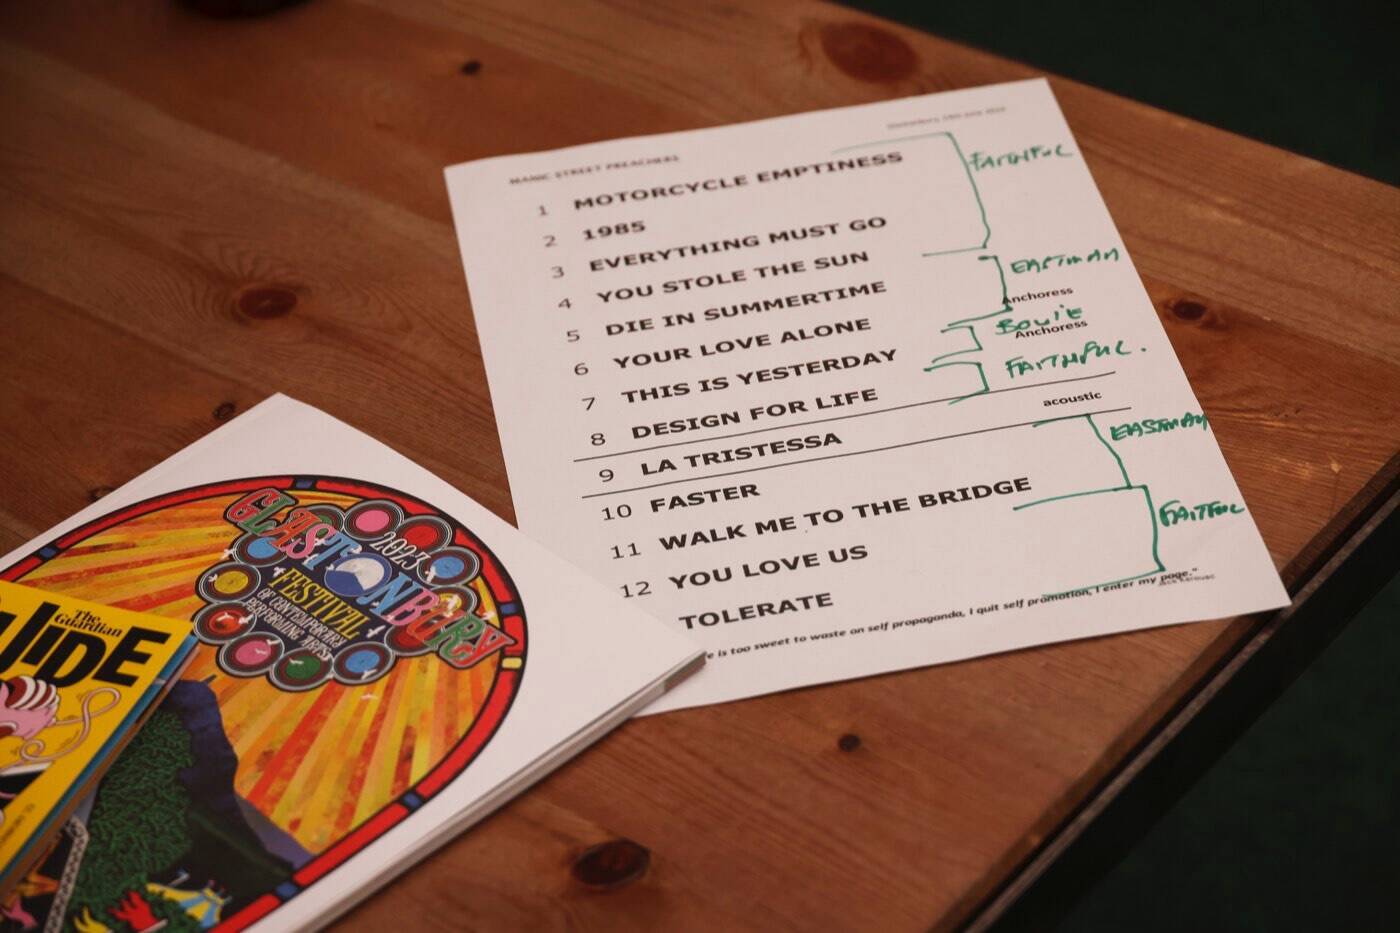 MANIC STREET PREACHERS
1 MOTORCYCLE EMPTINESS
FAITHFUL
2 1985
3 EVERYTHING MUST GO
4 YOU STOLE THE SUN
EASTMAN
5 DIE IN SUMMERTIME
6 YOUR LOVE ALONE Anchoress
BOWIE
7 THIS IS YESTERDAY Anchoress
FAITHFUL.
8 DESIGN FOR LIFE
9 LA TRISTESSA acoustic
EASTMAN
10 FASTER
11 WALK ME TO THE BRIDGE
FAITFUL
12 YOU LOVE US
TOLERATE
is too sweet to waste on self propaganda, I quit self promotion, I enter my page."
Jack Kerouac
GLASTONBURY
2023
FESTIVAL
OF CONTEMPORARY
PERFORMING ARTS
The
Guardian
UIDE